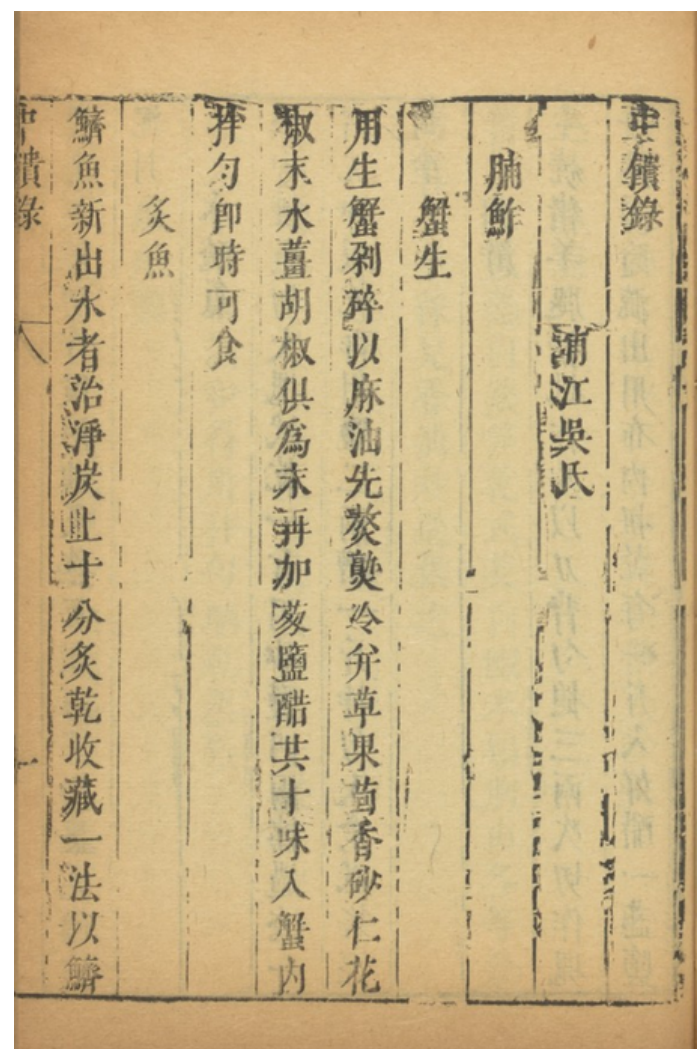 中饋錄
浦江吳氏
脯鮓
蟹生
用生蟹剁碎以麻油先熬熟冷并草果茴香砂仁花
椒末水薑胡椒俱爲末再加葱鹽醋共十味入蟹內
拌勻卽時可食
炙魚
鱭魚新出水者治淨炭上十分炙乾收藏一法以鱭
中饋錄
一